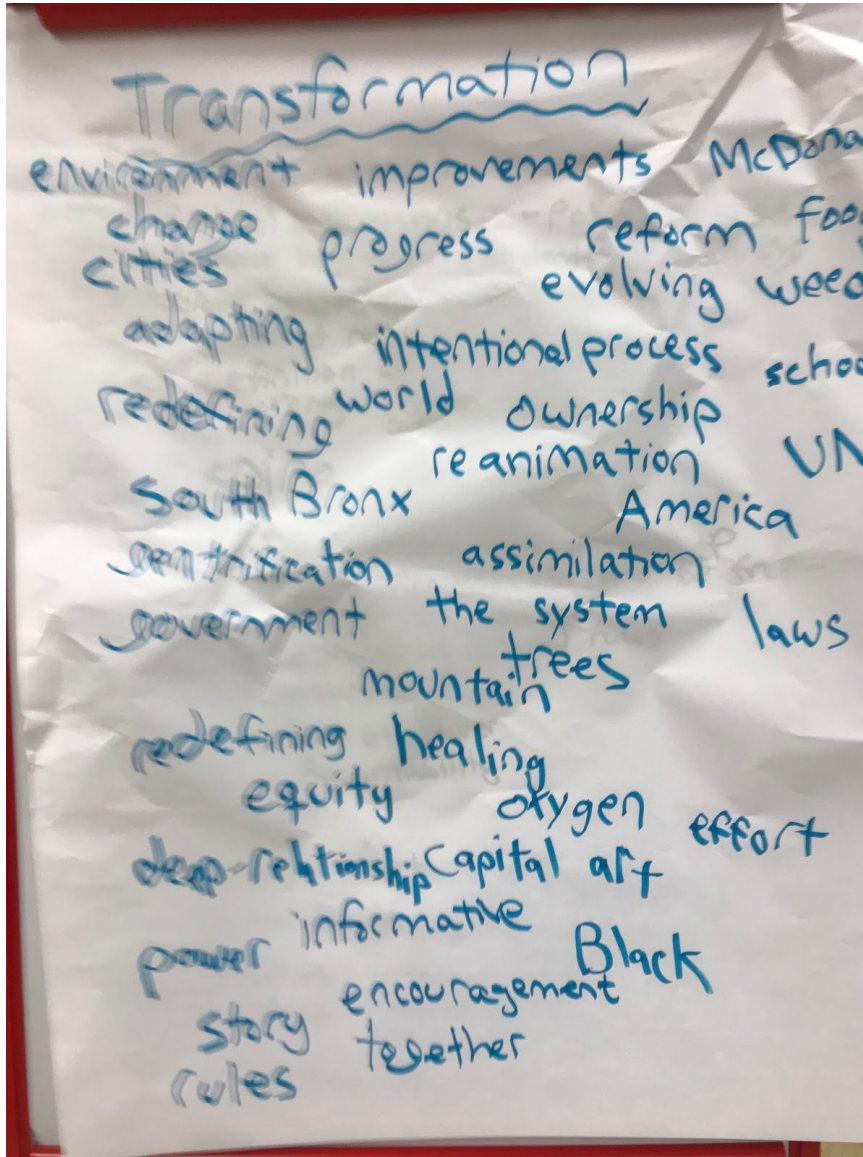 Transformation
environment improvements McDona
change progress reform foo
cities evolving weed
adapting intentional process schoo
redefining world ownership
reanimation UN
South Bronx America
gentrification assimilation
government the system laws
trees
mountain
redefining healing
equity oxygen effort
deep-reltionship Capital art
informative
power Black
encouragement
story together
rules